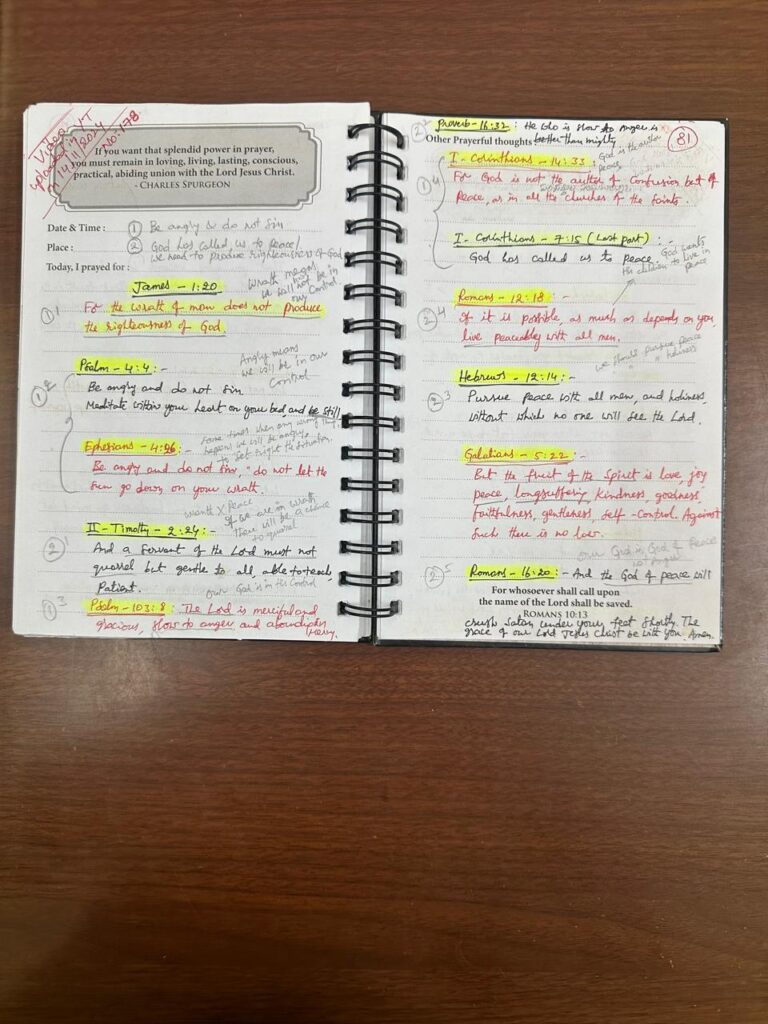 Video
uploaded in YT
on 14/11/2024
No: 178
If you want that splendid power in prayer,
you must remain in loving, living, lasting, conscious,
practical, abiding union with the Lord Jesus Christ.
- CHARLES SPURGEON
Date & Time : ① Be angry & do not sin
Place : ② God has called us to peace/
we need to produce righteousness of God
Today, I prayed for :
James - 1:20
Wrath means
we will not be in
our control.
① 1
For the wrath of man does not produce
the righteousness of God.
Psalm - 4:4 :-
Angry means
we will be in our
control
① 2
Be angry and do not sin
Meditate within your heart on your bed, and be still
Ephesians - 4:26 :-
Some times when any wrong thing
happens we will be angry,
to set right the situation.
Be angry and do not sin, " do not let the
Sun go down on your wrath.
wrath X peace
If we are in wrath
there will be a chance
to quarrel
II - Timothy - 2:24 :-
② 1
And a servant of the Lord must not
quarrel but gentle to all, able to teach,
Patient.
our God is in the Control
① 3
Psalm - 103:8 : The Lord is merciful and
gracious, slow to anger and abounding in
Mercy.
2 2
Proverb - 16:32 : He who is slow to anger is
Other Prayerful thoughts better than mighty
81
I - Corinthians - 14:33
God is the author
peace
① 4
For God is not the author of confusion but of
Peace, as in all the churches of the Saints.
I - Corinthians - 7:15 (Last part) :-
God has called us to peace.
God wants
his children to live in
peace
Romans - 12:18 :-
② 4
If it is possible, as much as depends on you,
live peaceably with all men.
we should pursue peace
" " holiness
Hebrews - 12:14 :-
② 3
Pursue peace with all men, and holiness,
without which no one will see the Lord.
Galatians - 5:22 :-
But the fruit of the Spirit is love, joy
peace, longsuffering, kindness, goodness,
faithfulness, gentleness, self-control. Against
such there is no law.
our God is God of Peace
not Anger
② 5
Romans - 16:20 :- And the God of peace will
For whosoever shall call upon
the name of the Lord shall be saved.
ROMANS 10:13
crush Satan under your feet shortly. The
grace of our Lord Jesus Christ be with you. Amen.